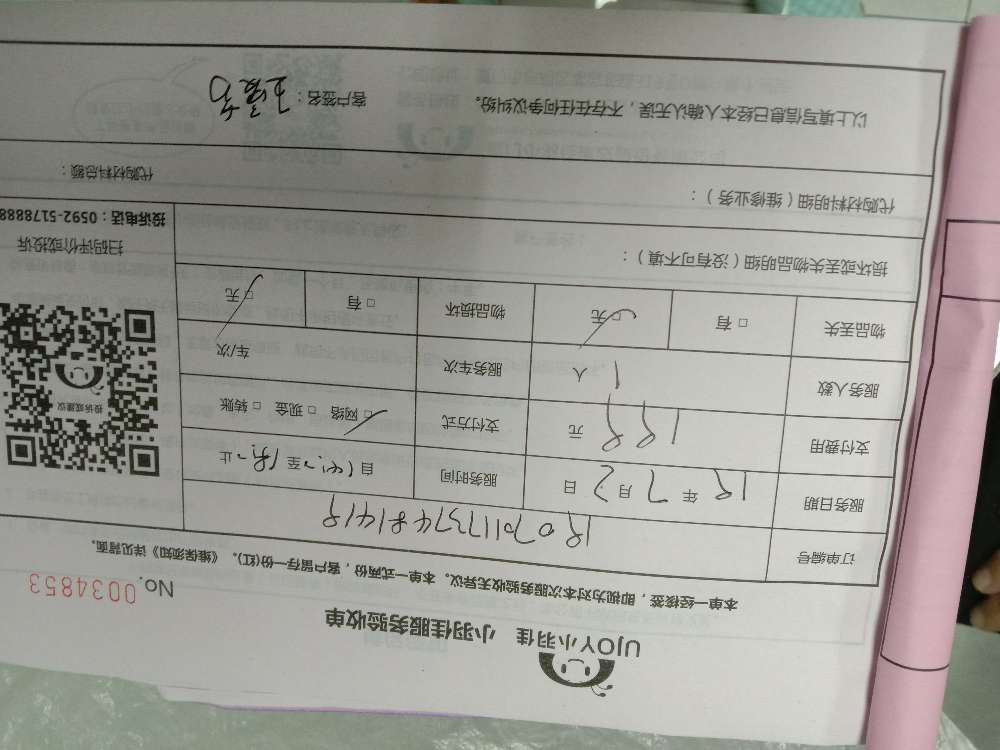 UJOY小羽佳 小羽佳服务验收单
No. 0034853
本单一经接签,即视为对本次服务验收无异议。本单一式两份,客户留存一份(红)。《维保须知》详见背面。
订单编号
服务日期 18 年 7 月 2 日 服务时间 自 至 止
支付费用 188 元 支付方式 □网络 □现金 □转账
服务人数 1 人 服务车次 车/次
物品丢失 □有 □无 物品损坏 □有 □无
损坏或丢失物品明细(没有可不填):
代购材料明细(维修业务): 代购材料总额:
以上填写信息已经本人确认无误,不存在任何争议纠纷。 客户签名:
投诉或建议
扫码评价或投诉
投诉电话:0592-5178888